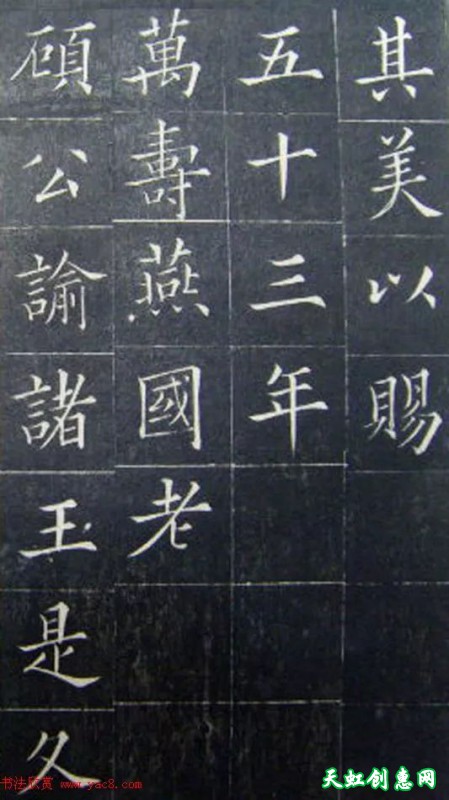 其美以賜
五十三年
萬壽燕國老
頋公諭諸王是久
书法欣赏 www.yac8.com
天虹创惠网